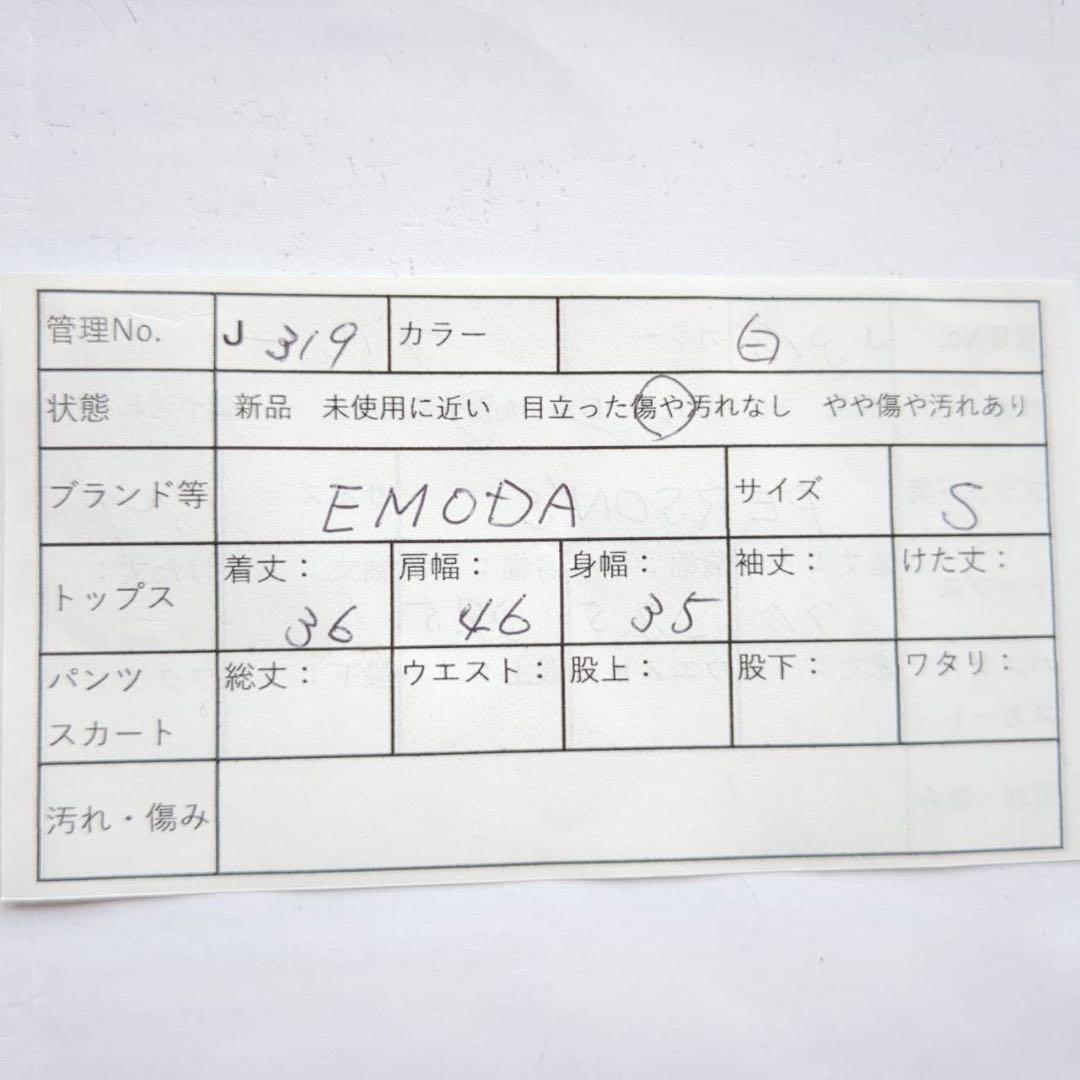 管理No. J 319 カラー 白
状態 新品 未使用に近い 目立った傷や汚れなし やや傷や汚れあり
ブランド等 EMODA サイズ S
トップス 着丈： 36 肩幅： 46 身幅： 35 袖丈： けた丈：
パンツ 総丈： ウエスト： 股上： 股下： ワタリ：
スカート
汚れ・傷み